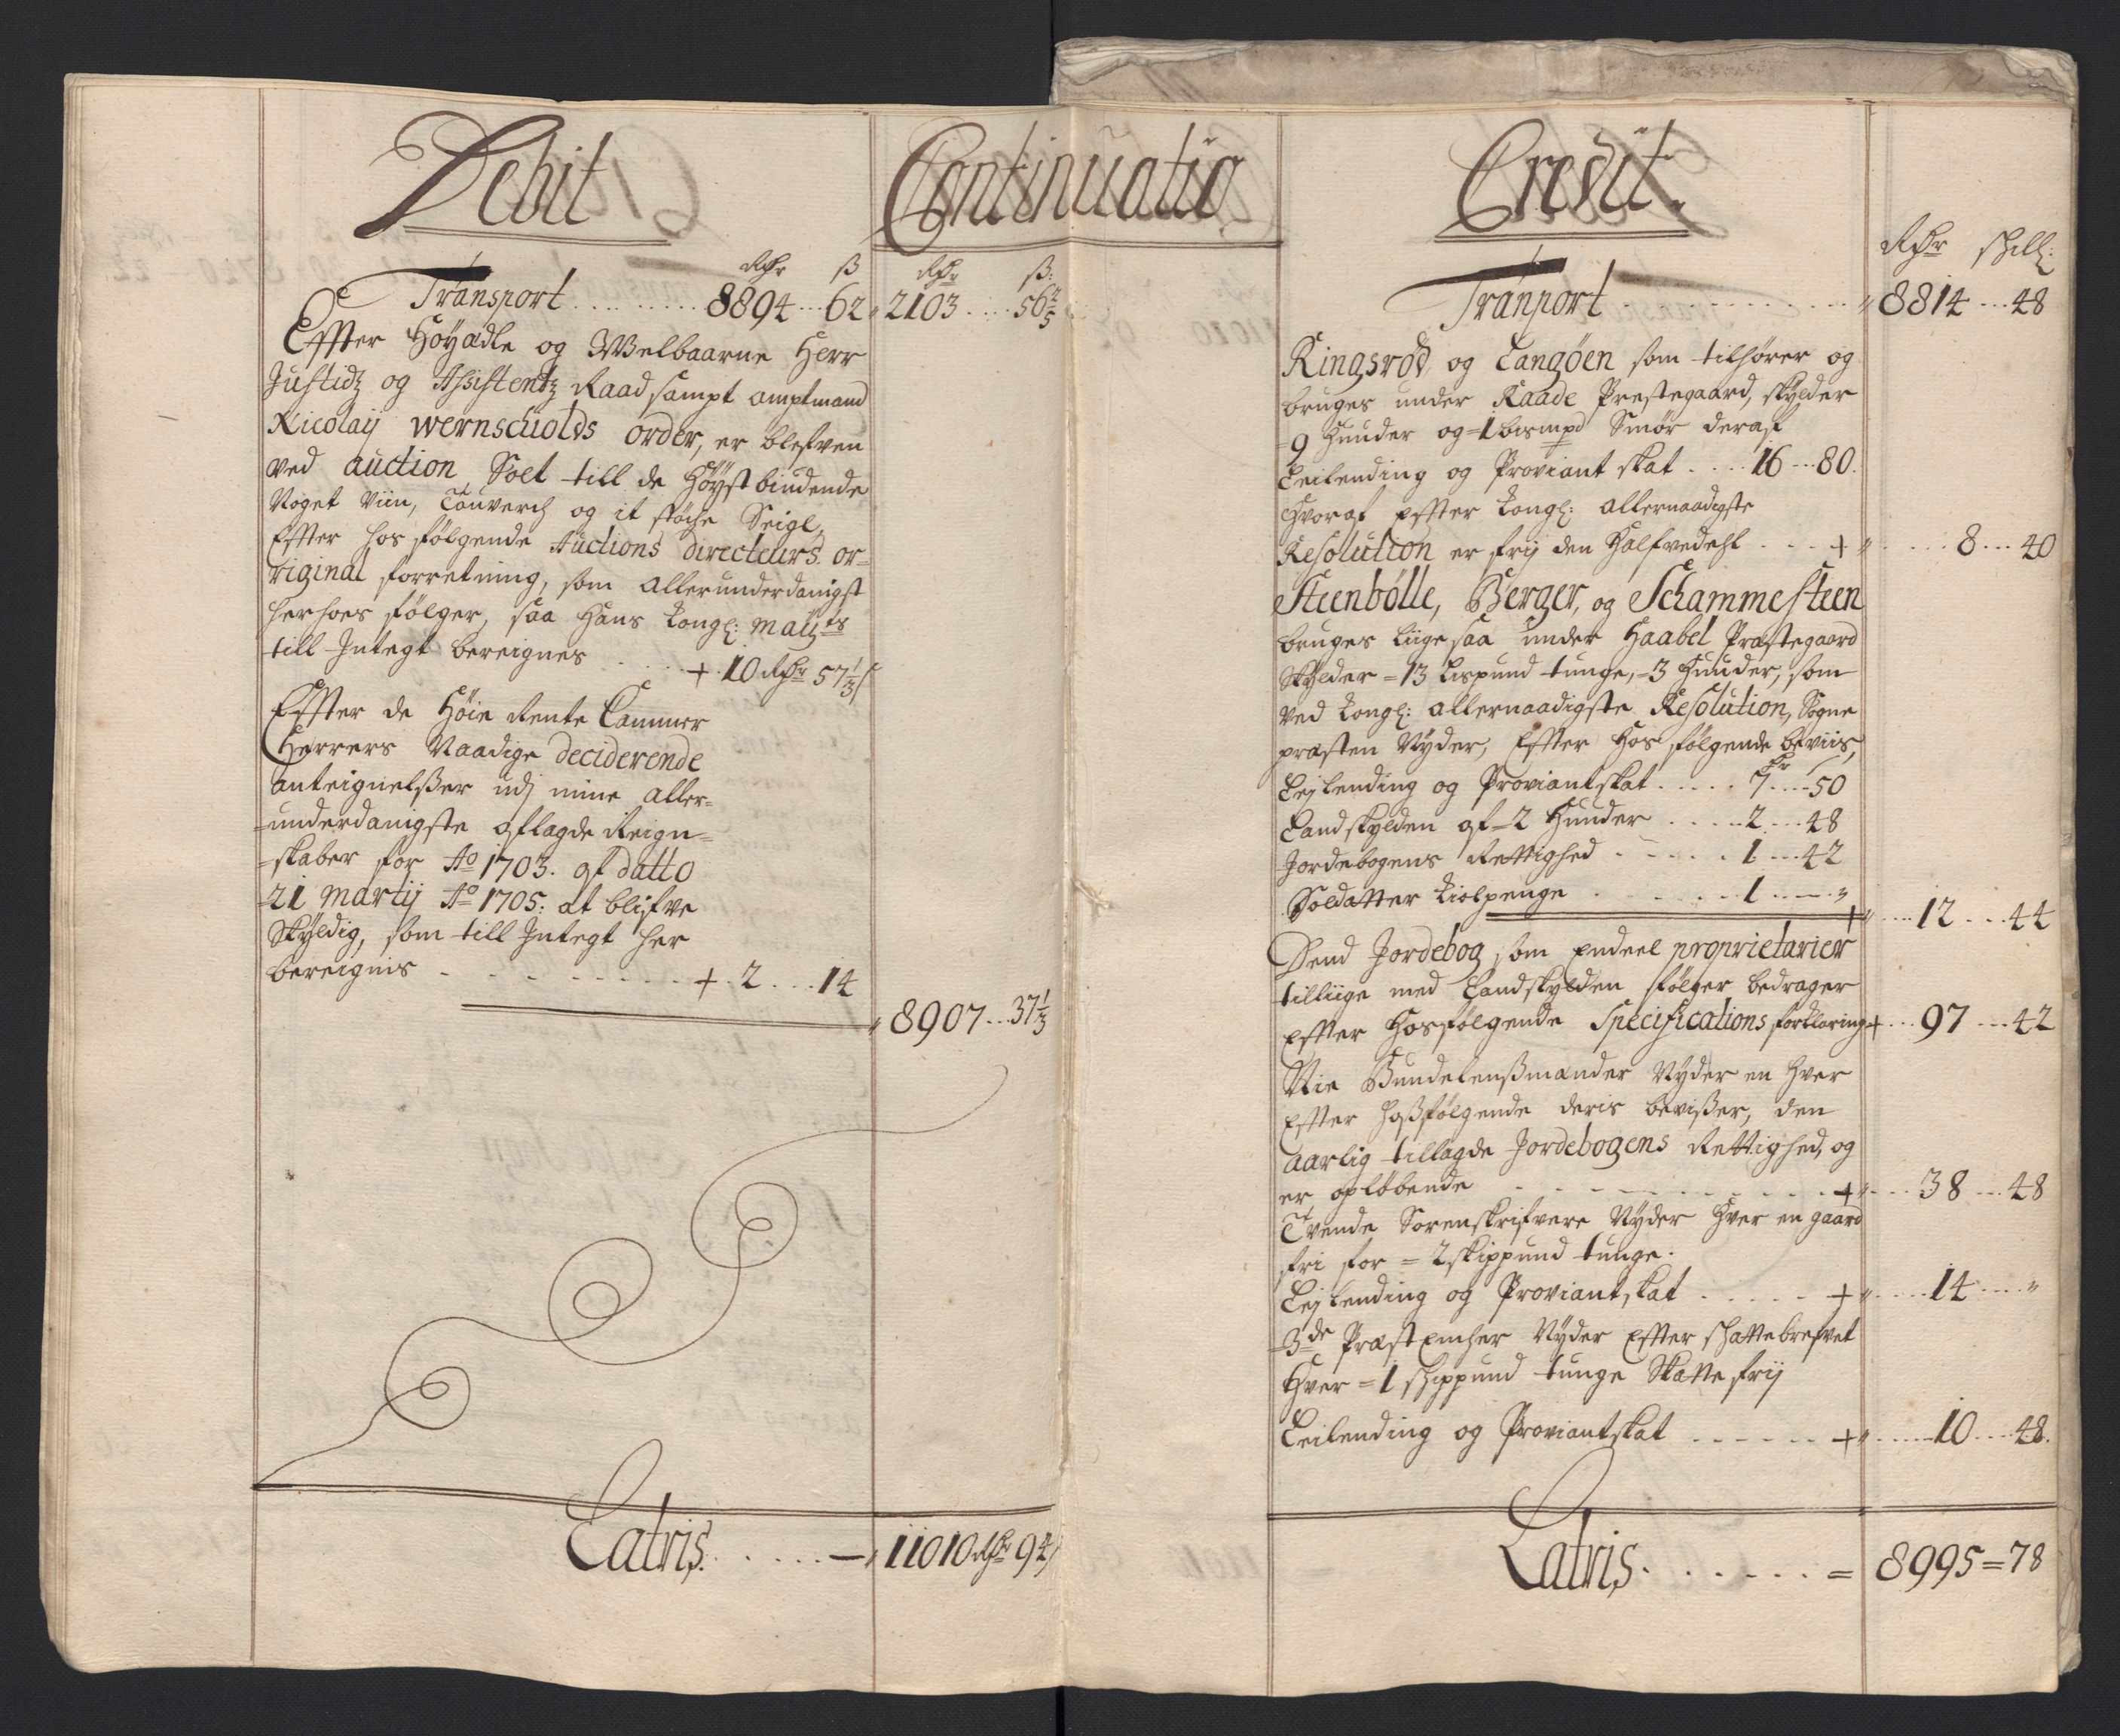 Debit
Continuatio
Rdr ß
Rdr ß:
Transport ......... 8894 ... 62 „ 2103 .... 56 2/5
Effter Höyædle og Welbaarne Herr
Justidz og Assistentz Raad sampt amptmand
Nicolaij wernschiolds order, er blefven
ved auction Solt till de Höyst biudende
Noget Viin, Touverch og it støche Seigl,
Effter hos følgende Auctions directeurs or=
riginal forretning, som allerunderdanigst
herhoes følger, saa Hans Kongl: Mayts
till Integt bereignes .... + 10 Rdr 57 1/3 ß
Effter de Höie Rente Cammer
Herrers Naadige deciderende
anteignelßer udj mine aller=
=underdanigste aflagde Reign=
=skaber for Ao 1703. af datto
21 Martij Ao 1705: at blifve
Skyldig, som till Integt her
bereignis - - - - - - - + . 2 ... 14
„ 8907 ... 37 1/3
Latris. ..... — „ 11010 Rdr 94 ß
Credit.
Rdr skill:
Tranport - - - - - - „ 8814 ... 48
Ringsrød, og Langøen som tilhører og
bruges under Raade Prestegaard, skylder
=9 Huuder og =1 bismpd Smør deraf
Leilending og Proviant skat .... 16 ... 80.
Hvoraf Effter Kongl: allernaadigste
Resolution er frij den Halfvedehl - - - + „ ..... 8 ... 40
Steenbölle, Berger, og Schammesteen
bruges liigesaa under Haabel Præstegaard
Skylder =13 Lispund tunge, =3 Huuder, som
Ved Kongl: allernaadigste Resolution, Sogne
præsten Nyder, Effter Hos følgende beviis,
Lejlending og Proviantskat ..... 7 .... 50
Landskylden af =2 Huuder ..... 2 ... 48
Jordebogens Rettighed - - - - - . 1 ... 42
Soldatter Kiolpenge - - - - - - 1 .— . „
+ „ .... 12 ... 44
Dend Jordebog som Endeel proprietarier
tilliige med Landskylden følger bedrager
Effter Hosfølgende Specifications forklaring + ... 97 ... 42
Nie Bundelensßmænder Nyder en Hver
Effter Hoßfølgende deris bevißer, den
aarlig tillagde Jordebogens Rettighed, og
er opløbende - - - - - - - - + „ .... 38 ... 48
Tvende Sorenskrifvere Nyder Hver en gaard
fri for = 2 skippund tunge.
Lejlending og Proviantskat ..... + „ ..... 14 .... „
3de Præst Encher Nyder Effter skattebrefvet
Hver = 1 skippund tunge Skatte frij
Leilending og Proviantskat ...... + „ ..... 10 .... 48.
Latris. ...... = 8995 = 78